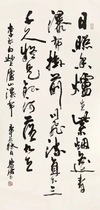 日照香爐生紫烟遥看
瀑布掛前川飛流直下三
千尺疑是銀河落九天
李白 廬山瀑布